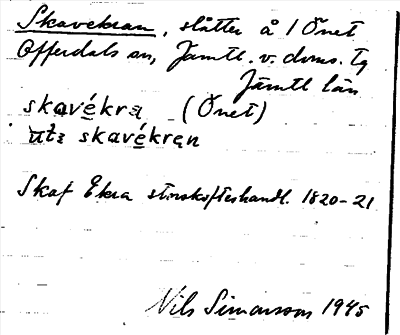 Skavekran, slåtter å 1 Önet
Offerdals sn, Jämtl. v. doms. Tg
Jämtl län
skavékra (Önet)
skavékran
Skaf Ekra storskifteshandl. 1820-21
Nils Simonsson 1945